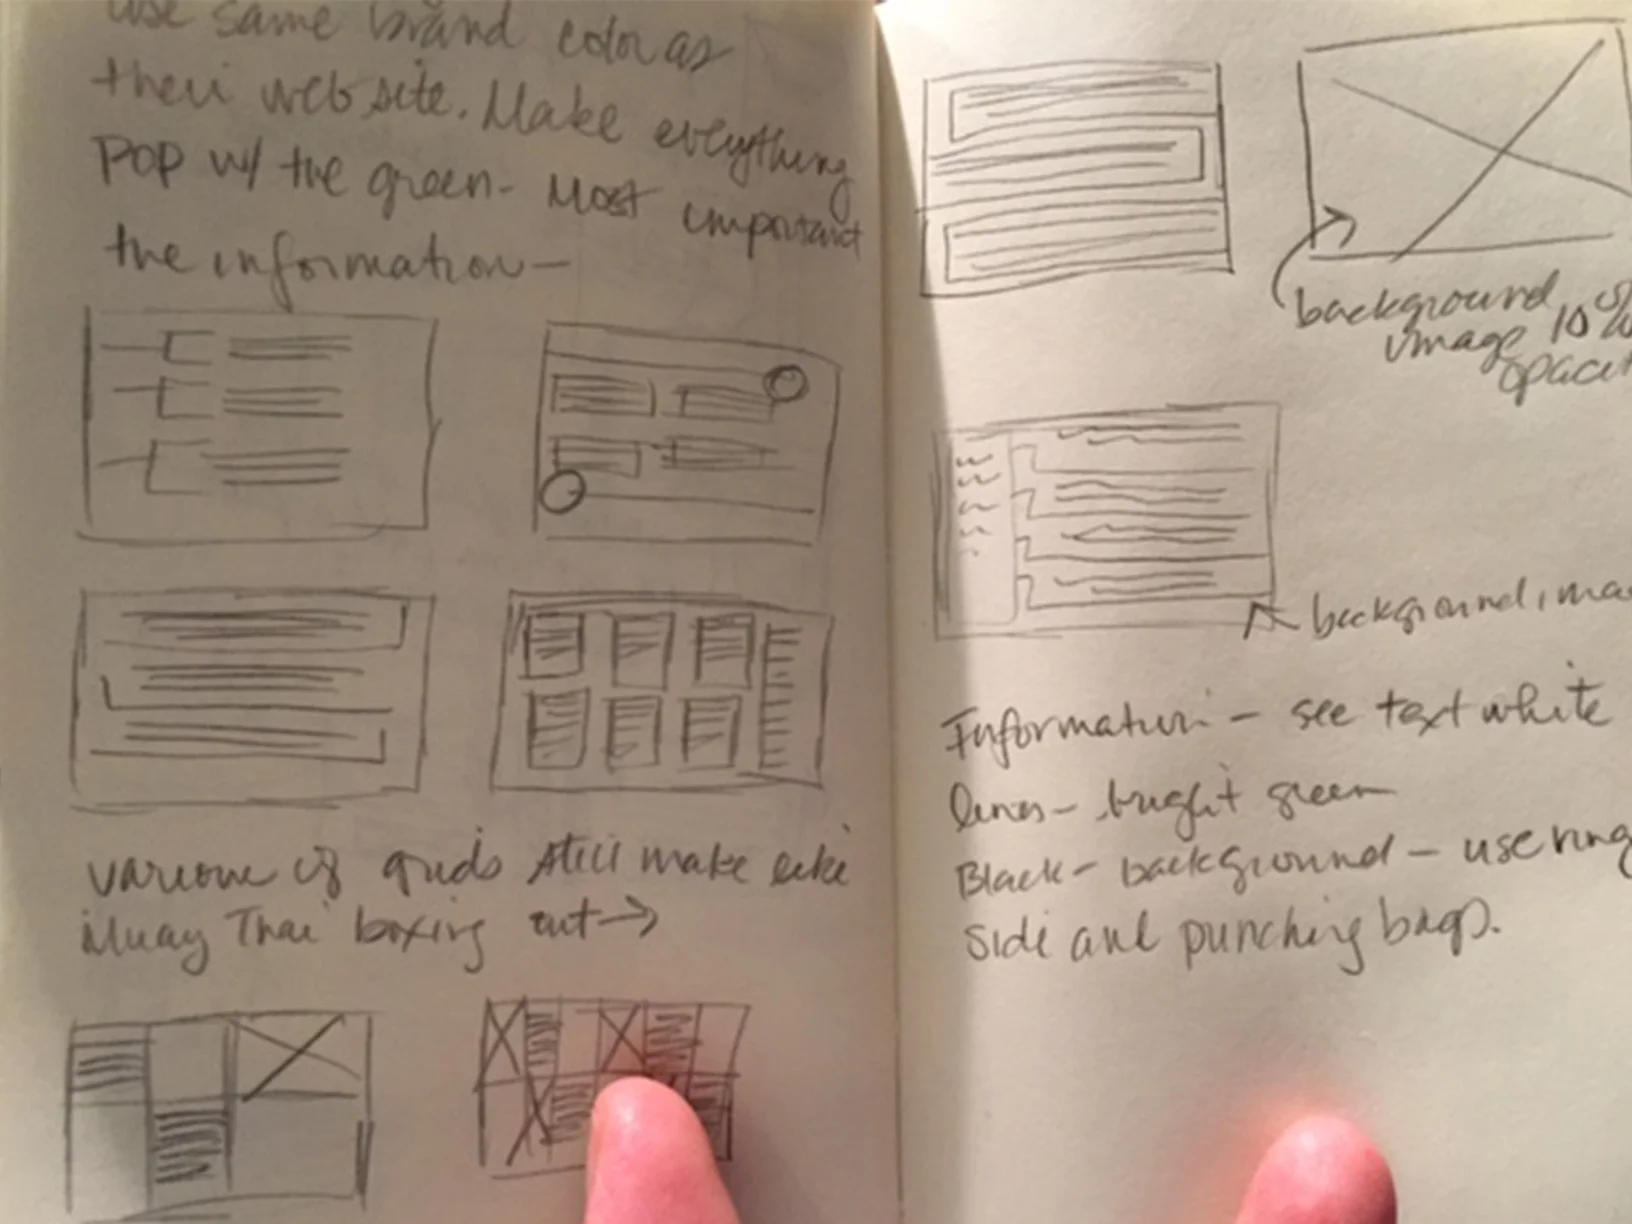 use same brand color as
their web site. Make everything
POP w/ the green- Most important
the information—
various of grids still make like
Muay Thai boxing cut→
background
image 10%
opacit
background ima
Information - see text white
lines- bright green
Black- background - use ring
side and punching bags.